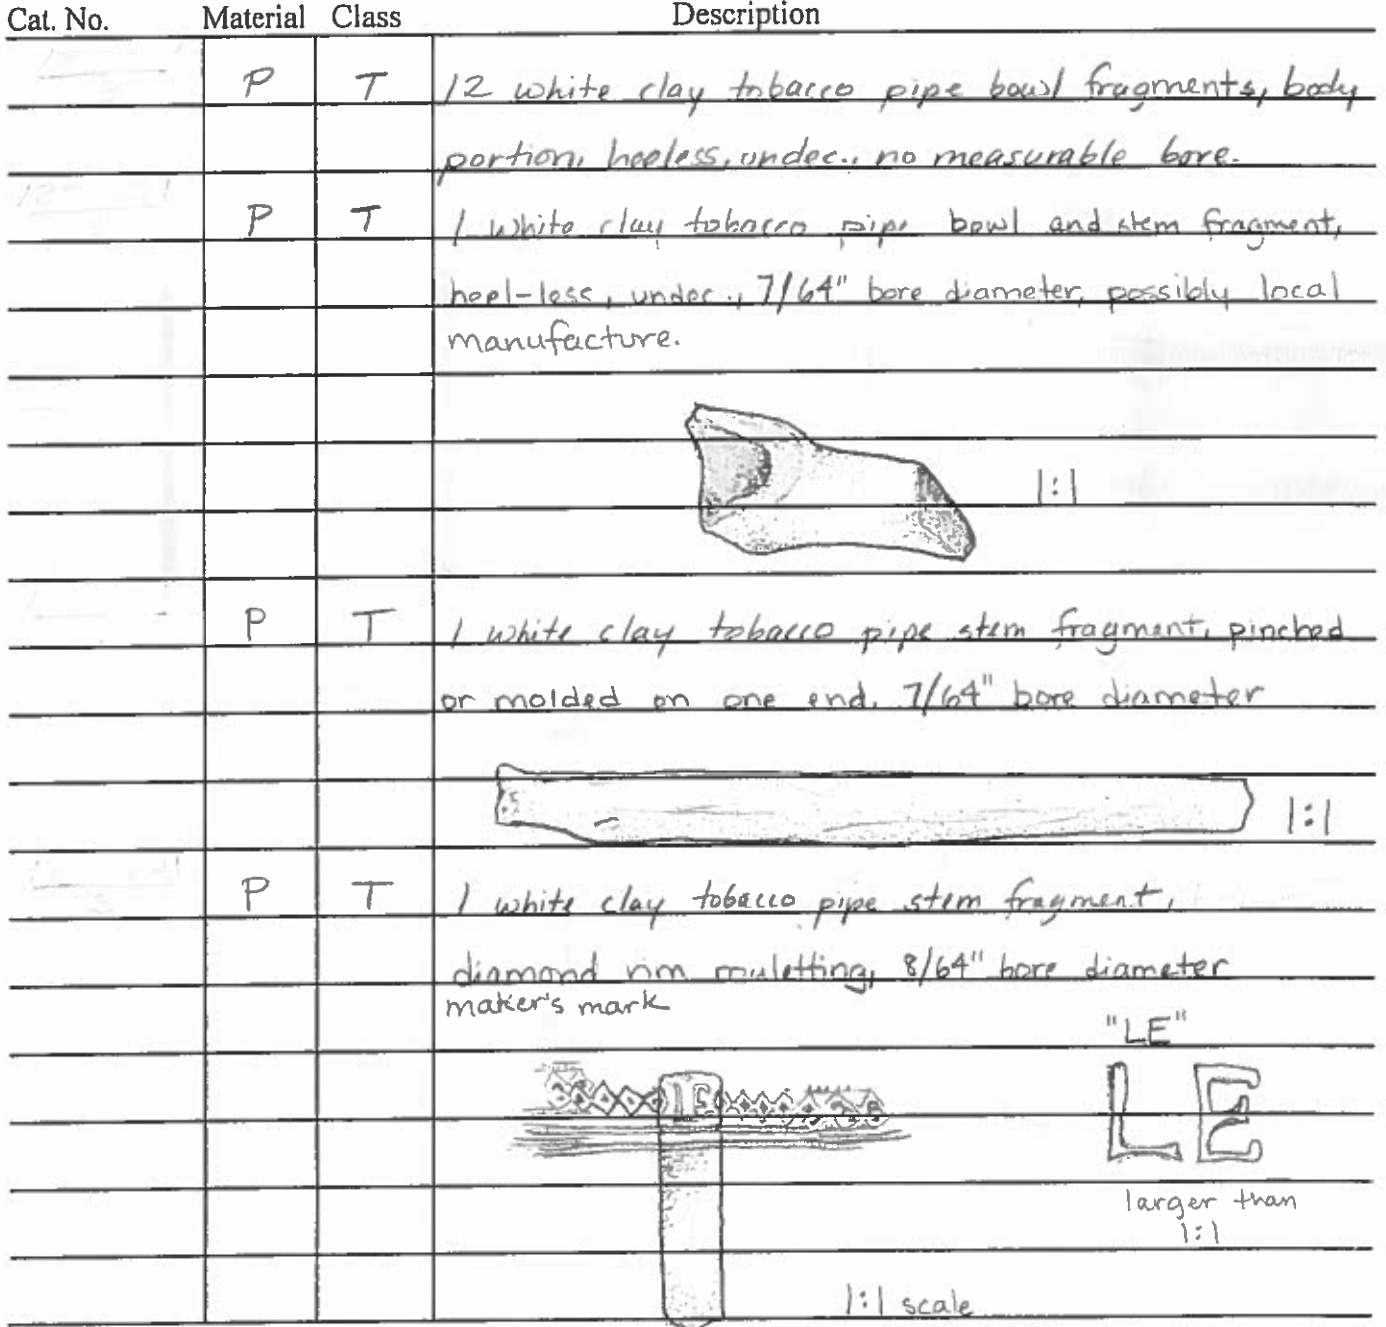 Cat. No. Material Class Description
P T 12 white clay tobacco pipe bowl fragments, body
portion, heeless, undec., no measurable bore.
P T 1 white clay tobacco pipe bowl and stem fragment,
heel-less, undec., 7/64" bore diameter, possibly local
manufacture.
1:1
P T 1 white clay tobacco pipe stem fragment, pinched
or molded on one end. 7/64" bore diameter
1:1
P T 1 white clay tobacco pipe stem fragment,
diamond rim rouletting, 8/64" bore diameter
maker's mark
"LE"
LE
LE
larger than
1:1
1:1 scale